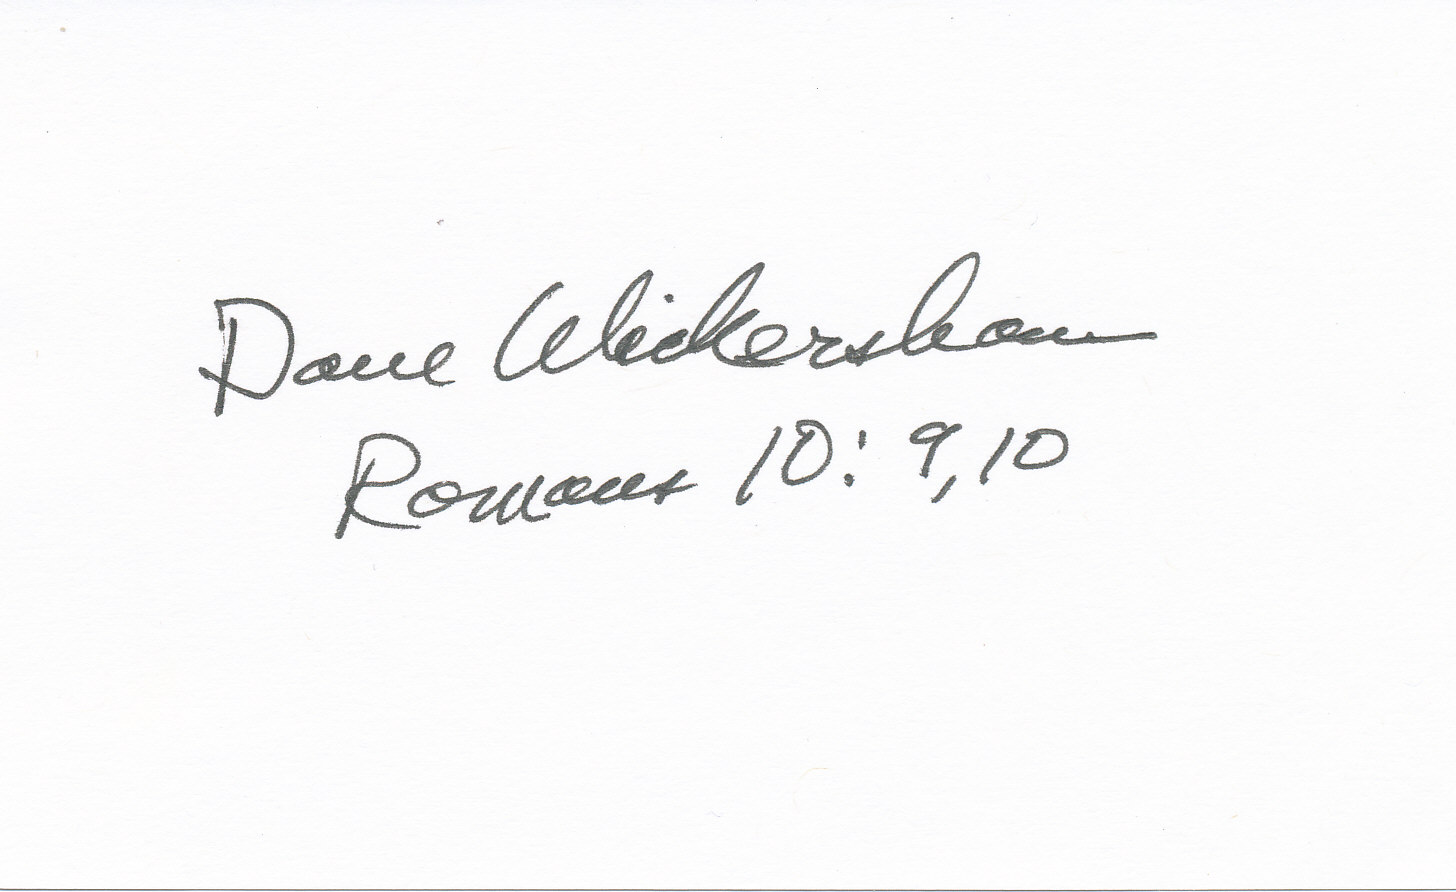 Dave Wickersham
Romans 10:9,10